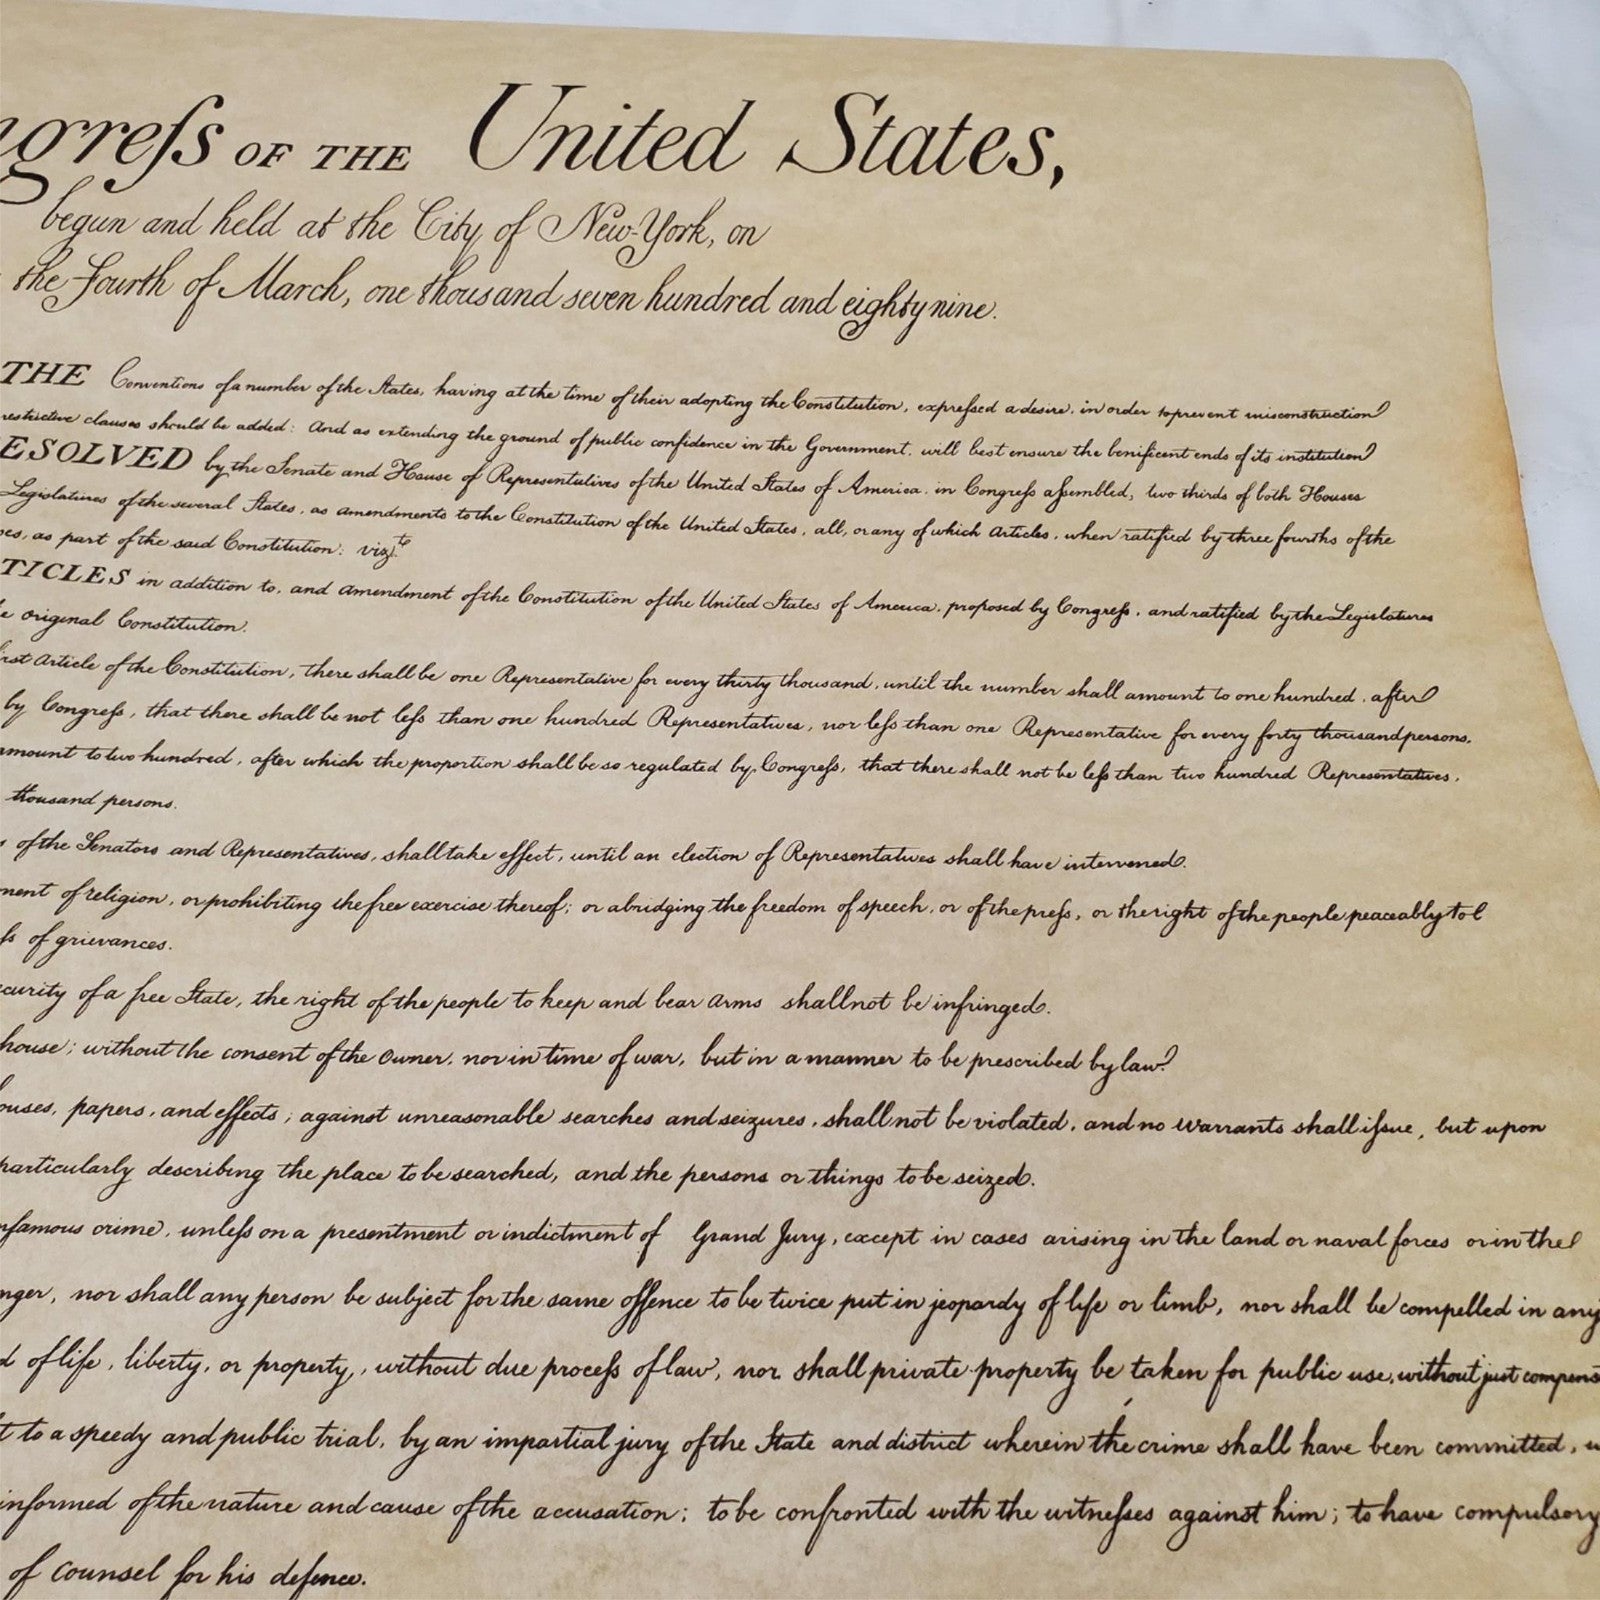 ngreſs OF THE United States,
begun and held at the City of New-York, on
the Fourth of March, one thousand seven hundred and eighty nine.
THE Conventions of a number of the States, having at the time of their adopting the Constitution, expreſsed a desire, in order to prevent misconstruction
restrictive clauses should be added: And as extending the ground of public confidence in the Government, will best ensure the benificent ends of its institution
ESOLVED by the Senate and House of Representatives of the United States of America, in Congreſs aſsembled, two thirds of both Houses
Legislatures of the several States, as amendments to the Constitution of the United States, all, or any of which Articles, when ratified by three fourths of the
ses, as part of the said Constitution; vizt
TICLES in addition to, and amendment of the Constitution of the United States of America, proposed by Congreſs, and ratified by the Legislatures
e original Constitution.
irst Article of the Constitution, there shall be one Representative for every thirty thousand, until the number shall amount to one hundred, after
by Congreſs, that there shall be not leſs than one hundred Representatives, nor leſs than one Representative for every forty thousand persons,
amount to two hundred, after which the proportion shall be so regulated by Congreſs, that there shall not be leſs than two hundred Representatives,
thousand persons.
s of the Senators and Representatives, shall take effect, until an election of Representatives shall have intervened.
ment of religion, or prohibiting the free exercise thereof; or abridging the freedom of speech, or of the preſs, or the right of the people peaceably to
ſs of grievances.
ecurity of a free State, the right of the people to keep and bear Arms shall not be infringed.
house; without the consent of the Owner, nor in time of war, but in a manner to be prescribed by law.
ouses, papers, and effects, against unreasonable searches and seizures, shall not be violated, and no Warrants shall iſsue, but upon
particularly describing the place to be searched, and the persons or things to be seized.
nfamous crime, unleſs on a presentment or indictment of Grand Jury, except in cases arising in the land or naval forces or in the
nger, nor shall any person be subject for the same offence to be twice put in jeopardy of life or limb, nor shall be compelled in any
d of life, liberty, or property, without due proceſs of law, nor shall private property be taken for public use, without just compens
t to a speedy and public trial, by an impartial jury of the State and district wherein the crime shall have been committed, w
informed of the nature and cause of the accusation; to be confronted with the witneſses against him; to have compulsory
of counsel for his defence.